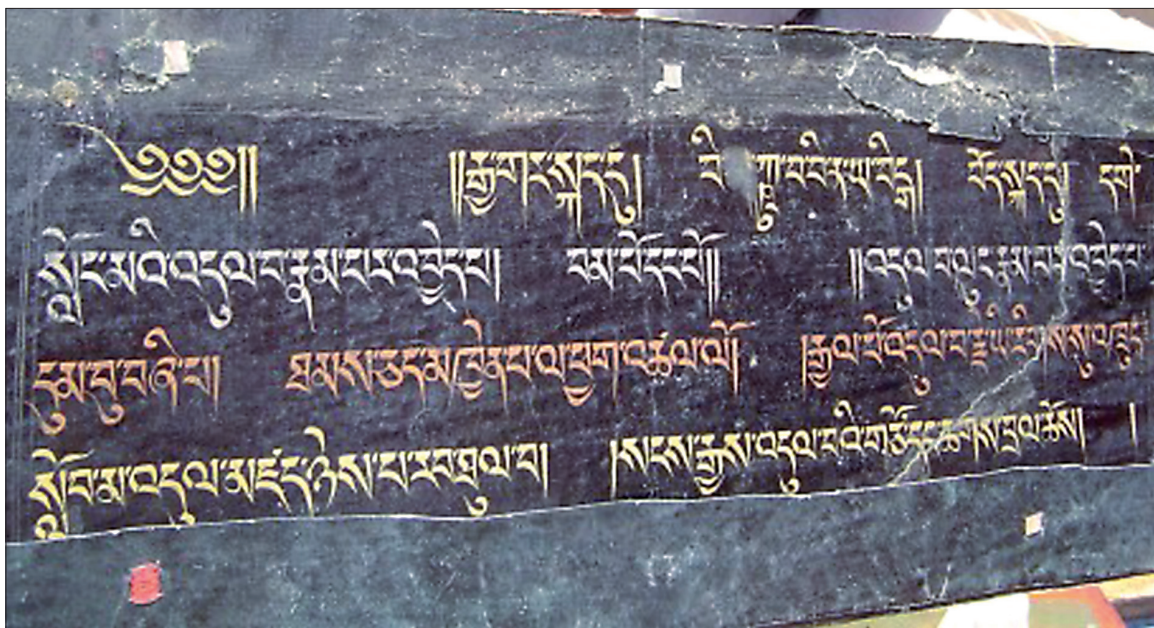 ༄༅༅།། །།རྒྱ་གར་སྐད་དུ། བི ཀྵུ་བ་བི་ན་ཡ་བི་དྷྃ། བོད་སྐད་དུ། དགེ་
སློང་མའི་འདུལ་བ་རྣམ་པར་འབྱེད་པ། བམ་པོ་དང་པོ།། །།འདུལ་བ་ལུང་རྣམ་པར་འབྱེད་པ་
དུམ་བུ་བཞི་པ། ཐམས་ཅད་མཁྱེན་པ་ལ་ཕྱག་འཚལ་ལོ། །རྒྱལ་པོ་འདུལ་བ་
སློབ་མ་འདུལ་མཛད་ཉེས་པ་རབ་ཐུལ་བ། །སངས་རྒྱས་འདུལ་བའི་གཙོ་དང་ཆགས་བྲལ་ཆོས། །